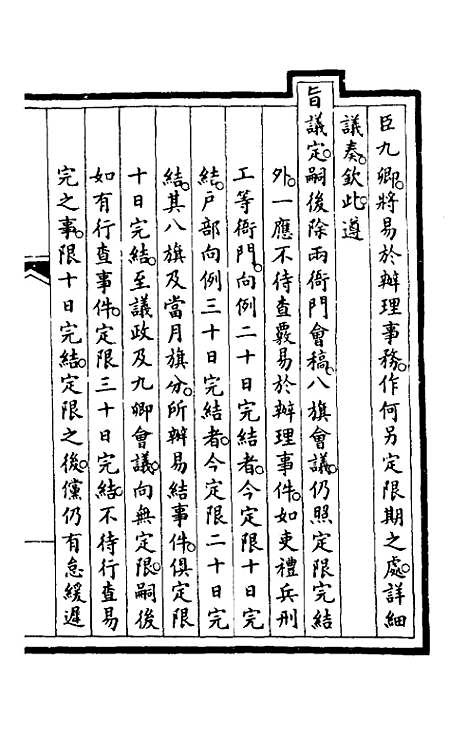 臣九卿。將易於辦理事務。作何另定限期之處。詳細
議奏。欽此。遵
旨議定。嗣後除兩衙門會稿。八旗會議。仍照定限完結
外。一應不待查覈易於辦理事件。如吏禮兵刑
工等衙門。向例二十日完結者。今定限十日完
結。戶部向例三十日完結者。今定限二十日完
結。其八旗及當月旗分。所辦易結事件。俱定限
十日完結。至議政及九卿會議。向無定限。嗣後
如有行查事件。定限三十日完結。不待行查易
完之事。限十日完結。定限之後。儻仍有怠緩遲